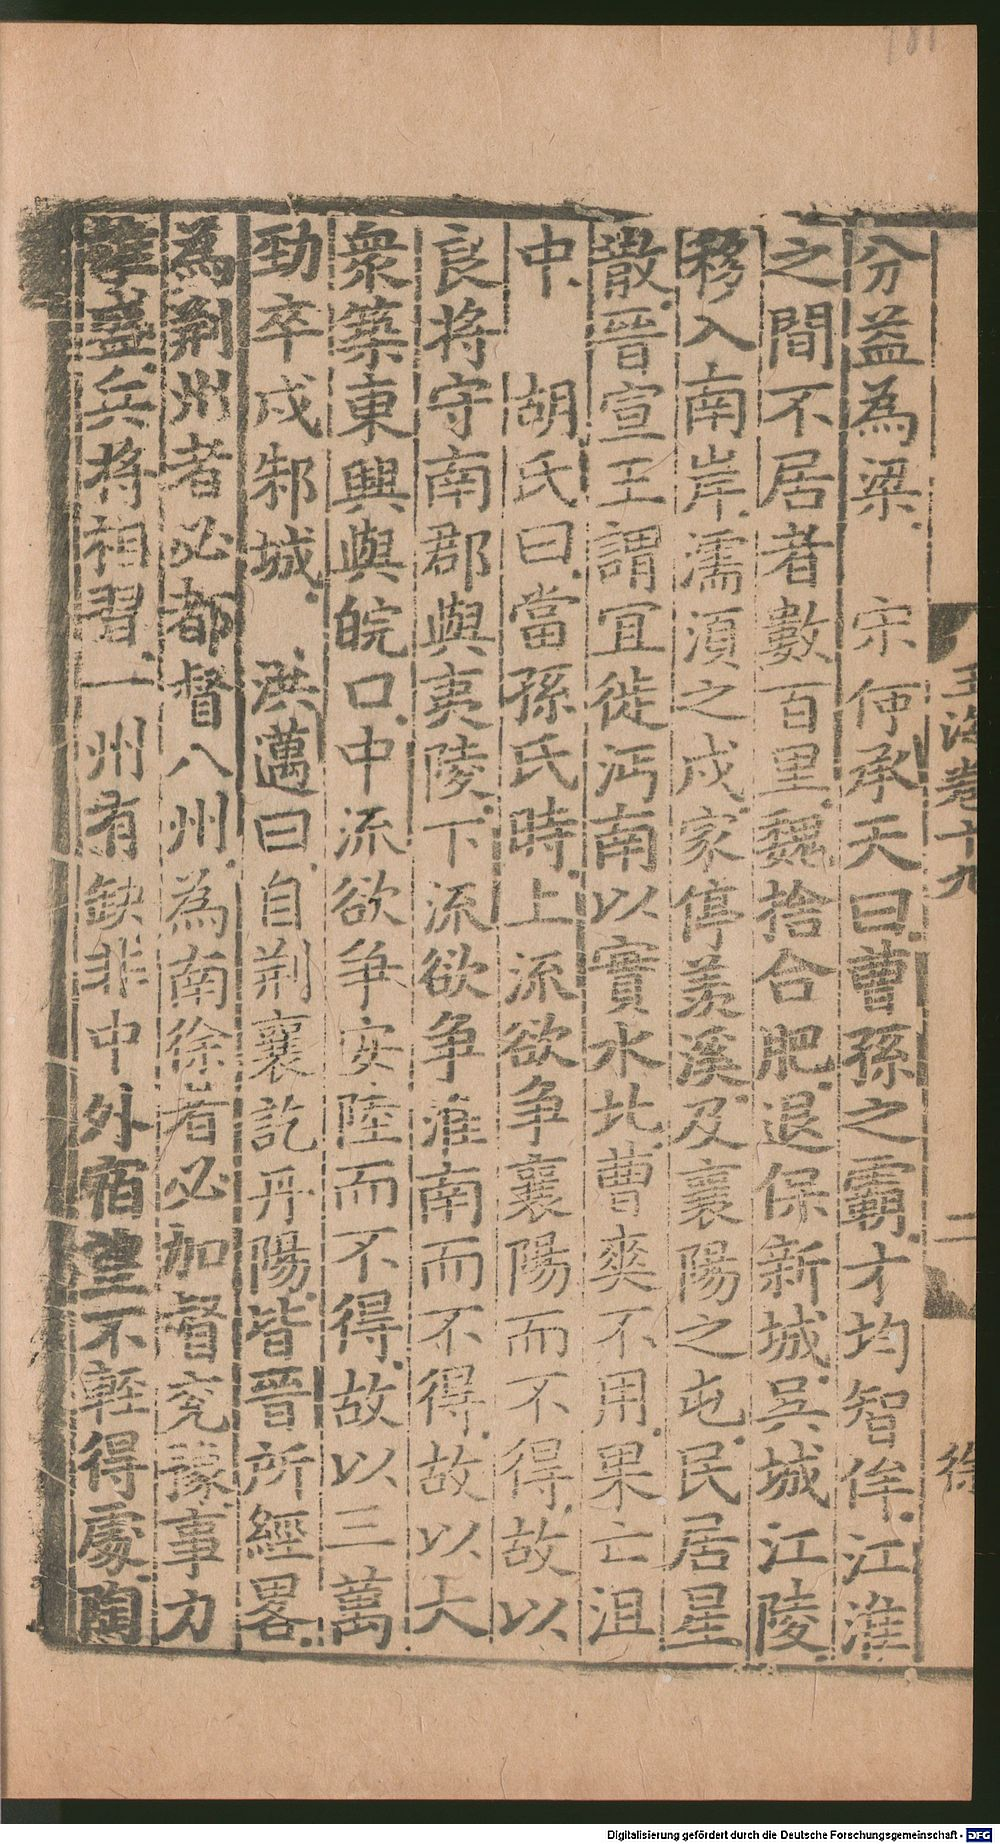 分益為梁　宋何承天曰曹孫之霸才均智侔江淮
之間不居者數百里魏捨合肥退保新城吳城江陵
移入南岸濡須之戍家停羨溪及襄陽之屯民居星
散晉宣王謂宜徙沔南以實水北曹爽不用果亡沮
中　胡氏曰當孫氏時上流欲争襄陽而不得故以
良将守南郡與夷陵下流欲争淮南而不得故以大
衆築東興與皖口中流欲争安陸而不得故以三萬
勁卒戍邾城　洪邁曰自荆襄訖丹陽皆晉所經畧
為荆州者必都督八州為南徐者必加督兖豫事力
盛兵将相習一州有缺非中外宿望不輕得處陶
玉海卷十九
二
Digitalisierung gefördert durch die Deutsche Forschungsgemeinschaft - DFG